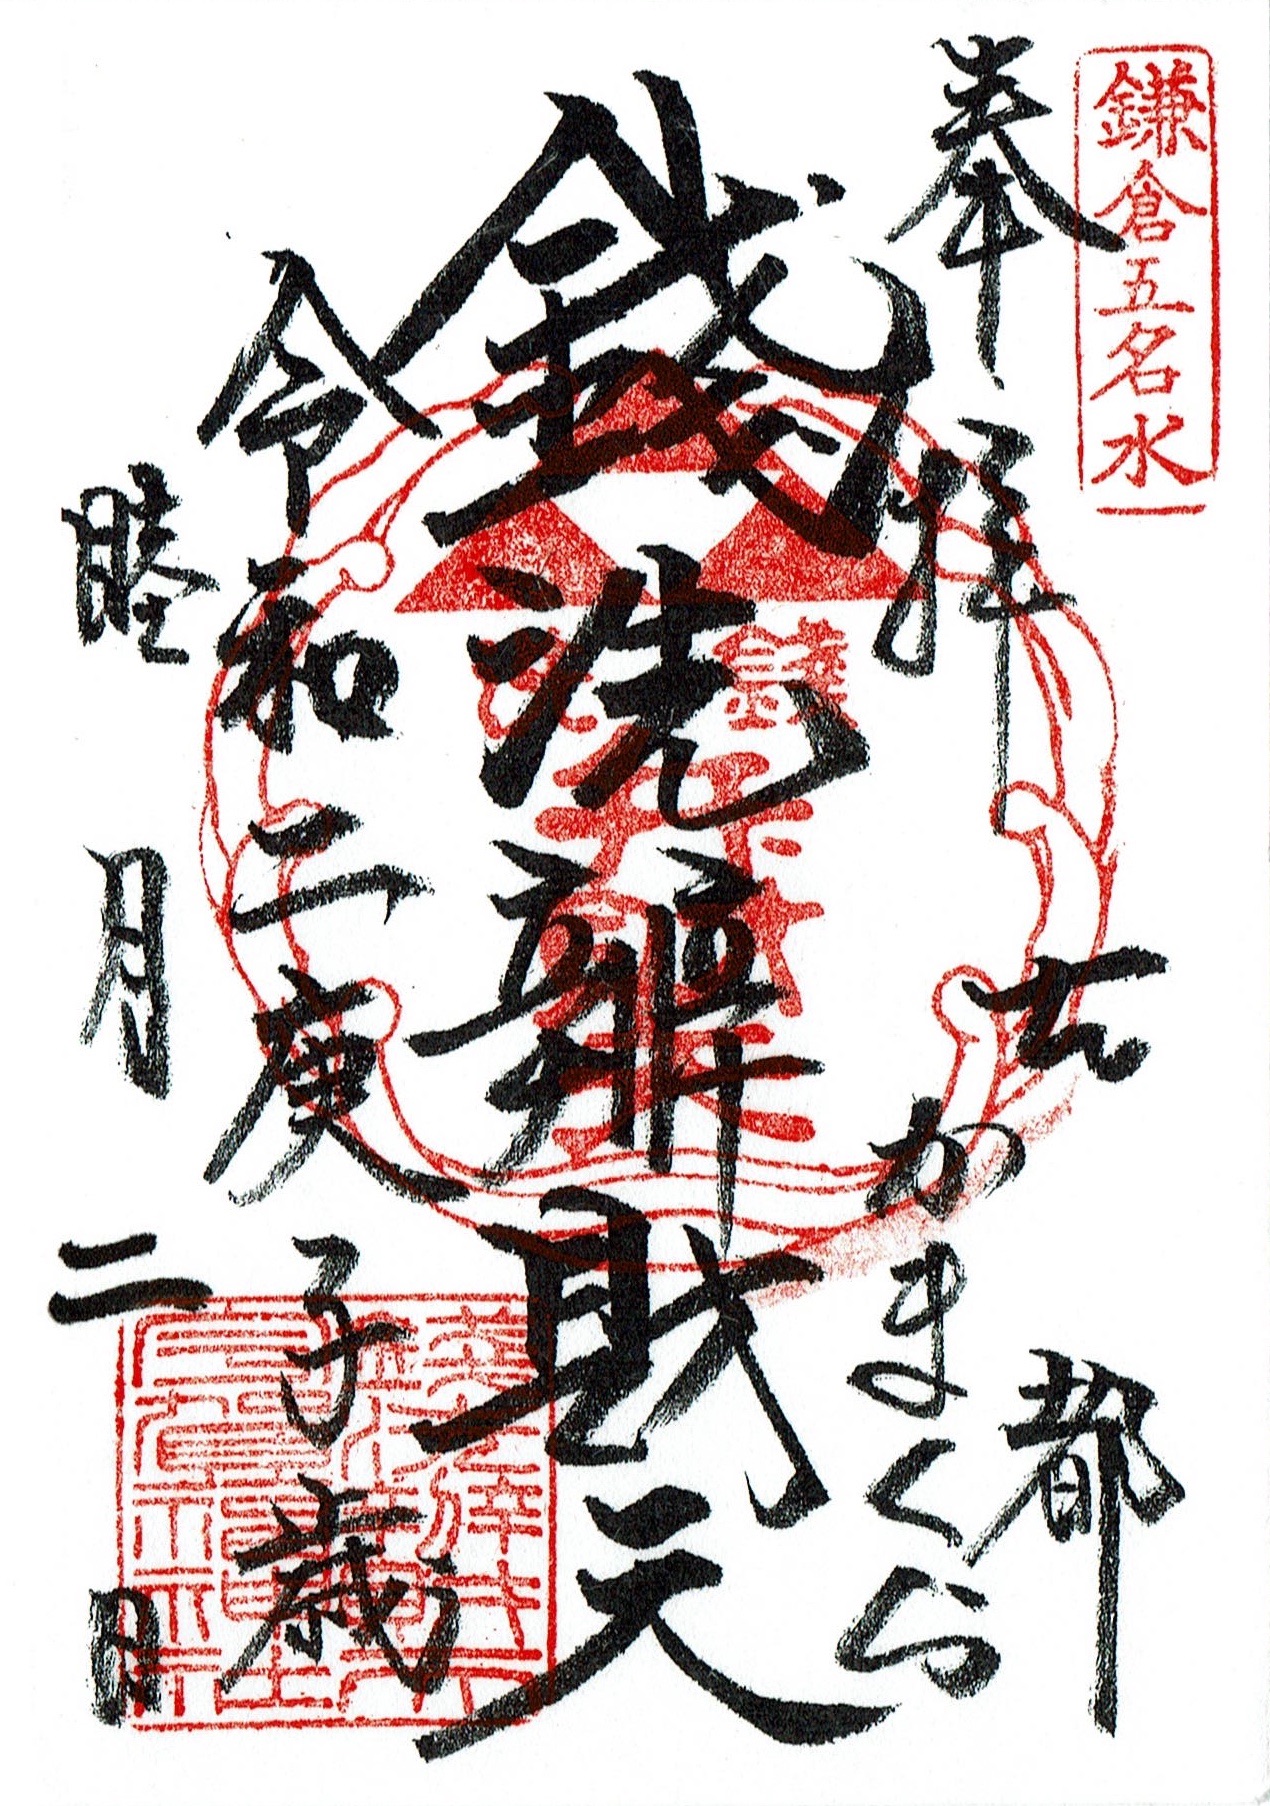 鎌倉五名水
奉拝
古都
かまくら
銭洗辨財天
令和二庚子歳
睦月二日